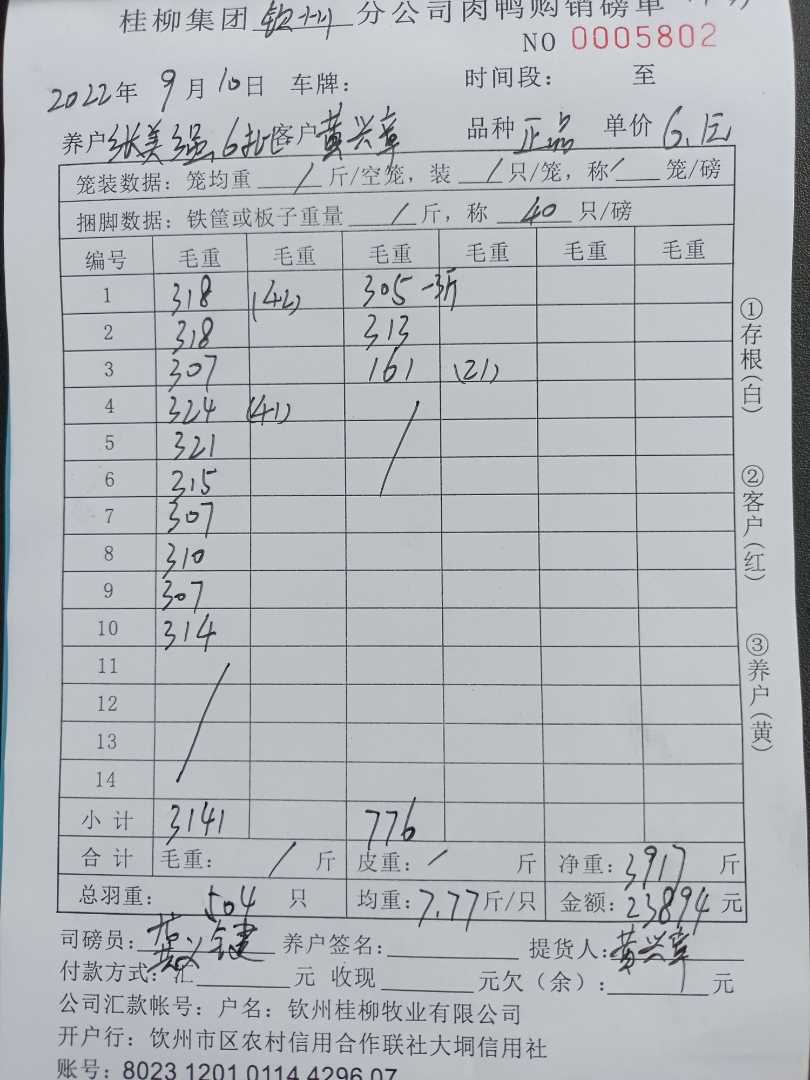 桂柳集团 钦州 分公司肉鸭购销磅单
NO 0005802
2022年 9月10日 车牌： 时间段： 至
养户 张美强 6批 客户 黄兴章 品种 正品 单价 6.1元
笼装数据：笼均重 / 斤/空笼，装 / 只/笼，称 / 笼/磅
捆脚数据：铁筐或板子重量 / 斤，称 40 只/磅
编号 毛重 毛重 毛重 毛重 毛重 毛重
1 318 (42) 305 -3斤
2 318 313
3 307 161 (21)
4 324 (41) /
5 321
6 315
7 307
8 310
9 307
10 314
11 /
12
13
14
小计 3141 776
合计 毛重： / 斤 皮重： / 斤 净重：3917 斤
总羽重： 504 只 均重：7.77斤/只 金额：23894元
司磅员： 养户签名： 提货人：黄兴章
付款方式：汇 元 收现 元欠（余）： 元
公司汇款帐号：户名：钦州桂柳牧业有限公司
开户行：钦州市区农村信用合作联社大垌信用社
账号：8023 1201 0114 4296 07
①存根(白)
②客户(红)
③养户(黄)